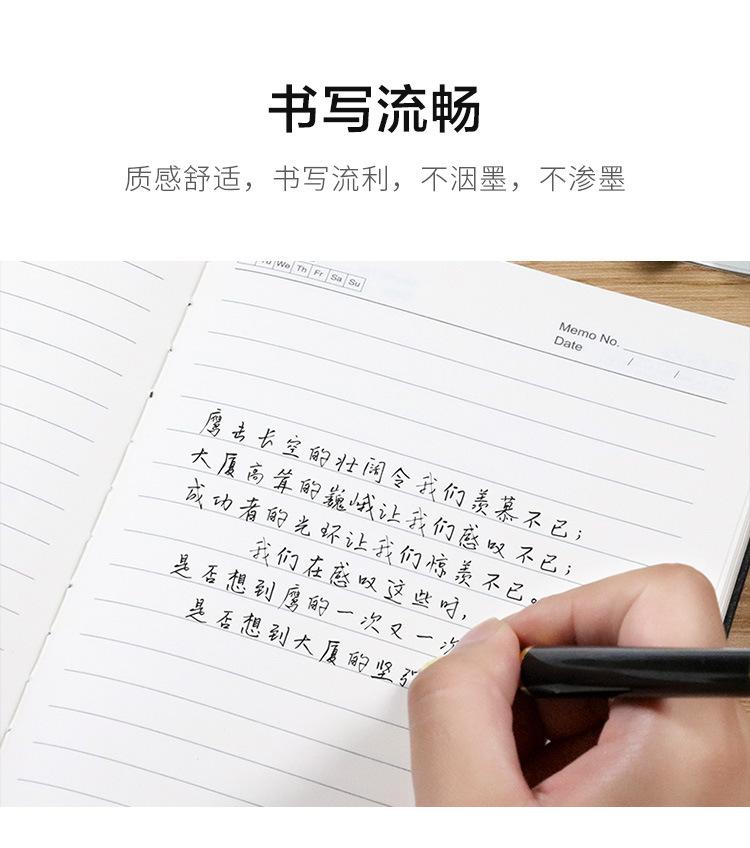 书写流畅
质感舒适，书写流利，不洇墨，不渗墨
Tu We Th Fr Sa Su
Memo No.
Date / /
鹰击长空的壮阔令我们羡慕不已；
大厦高耸的巍峨让我们感叹不已；
成功者的光环让我们惊羡不已。
我们在感叹这些时，
是否想到鹰的一次又一次
是否想到大厦的坚强